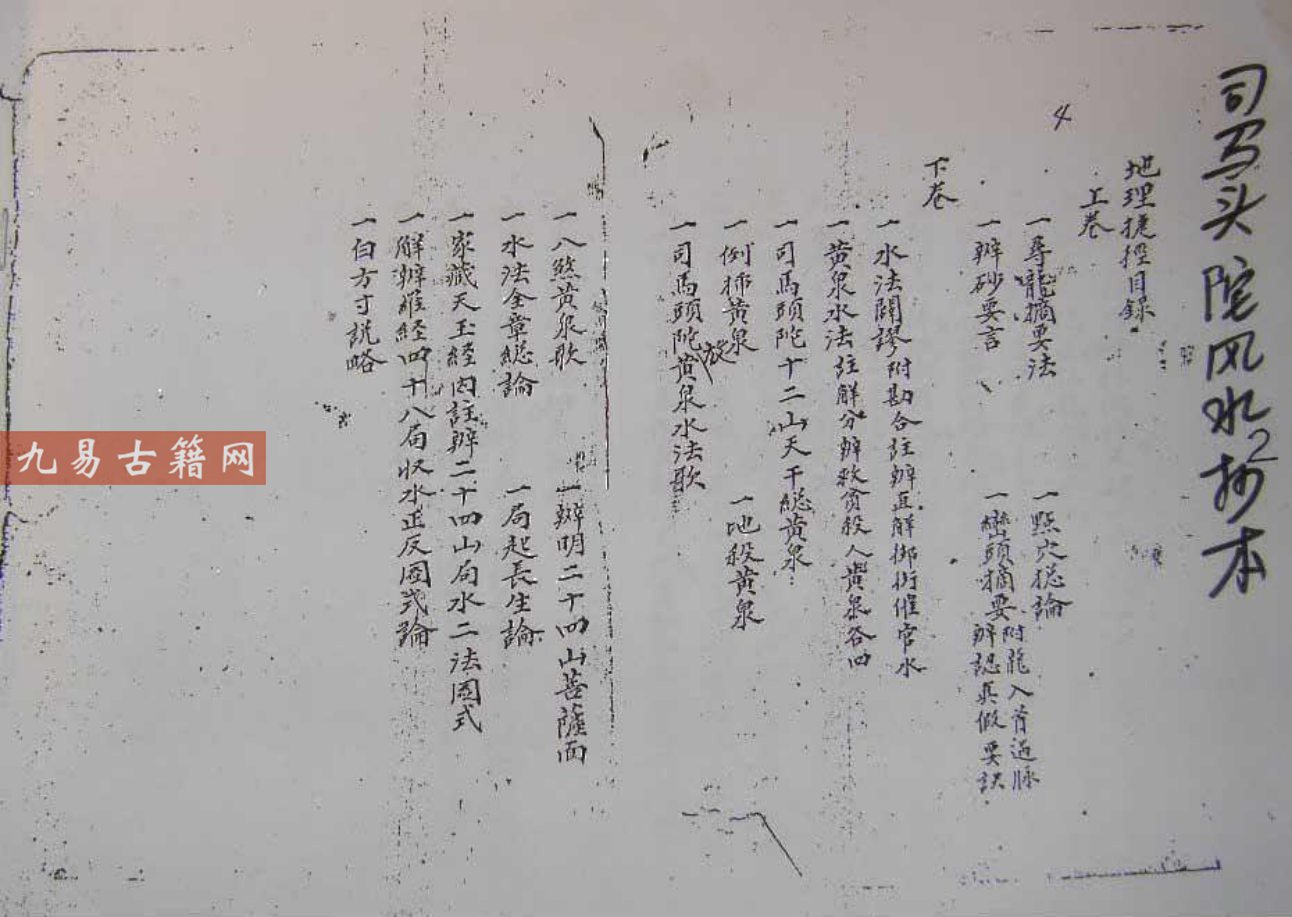 司马头陀风水抄本2
4
地理捷徑目錄
上卷
一尋龍摘要法 一點穴总論
一辨砂要言 一巒頭摘要 附龍入首過脉 辨認真假要訣
下卷
一水法闢謬 附勘合註辨 直解御街催官水
一黄泉水法 註觧分辦救貧殺人黄泉各四
一司馬頭陀十二山天干总黄泉
一例排黄泉 一地殺黄泉
一司馬頭陀放黄泉水法歌
一八煞黄泉歌 一辦明二十四山菩薩面
一水法全章总論 一局起長生論
一家藏天玉經内註辨二十四山局水二法圖式
一觧辨羅經四十八局收水正反圖式論
一白方寸説略
九易古籍网